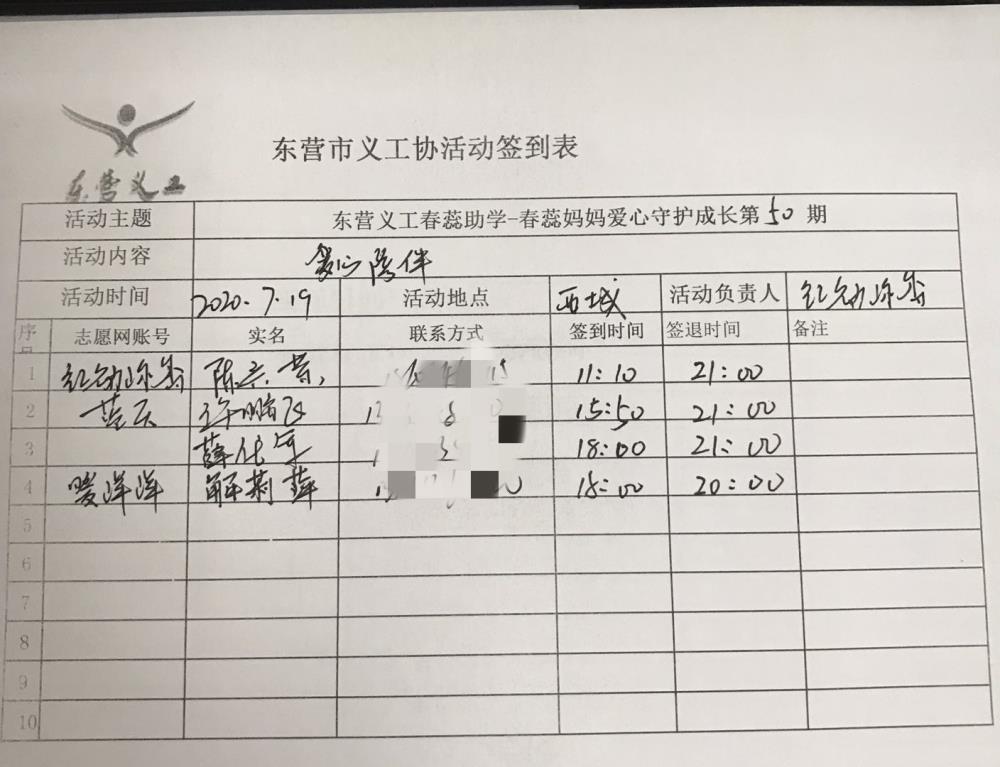 东营义工
东营市义工协活动签到表
活动主题 东营义工春蕊助学-春蕊妈妈爱心守护成长第50期
活动内容 爱心陪伴
活动时间 2020.7.19 活动地点 西城 活动负责人
序号 志愿网账号 实名 联系方式 签到时间 签退时间 备注
1 11:10 21:00
2 蓝天 许鹏飞 15:50 21:00
3 18:00 21:00
4 暖洋洋 解莉萍 18:00 20:00
5
6
7
8
9
10